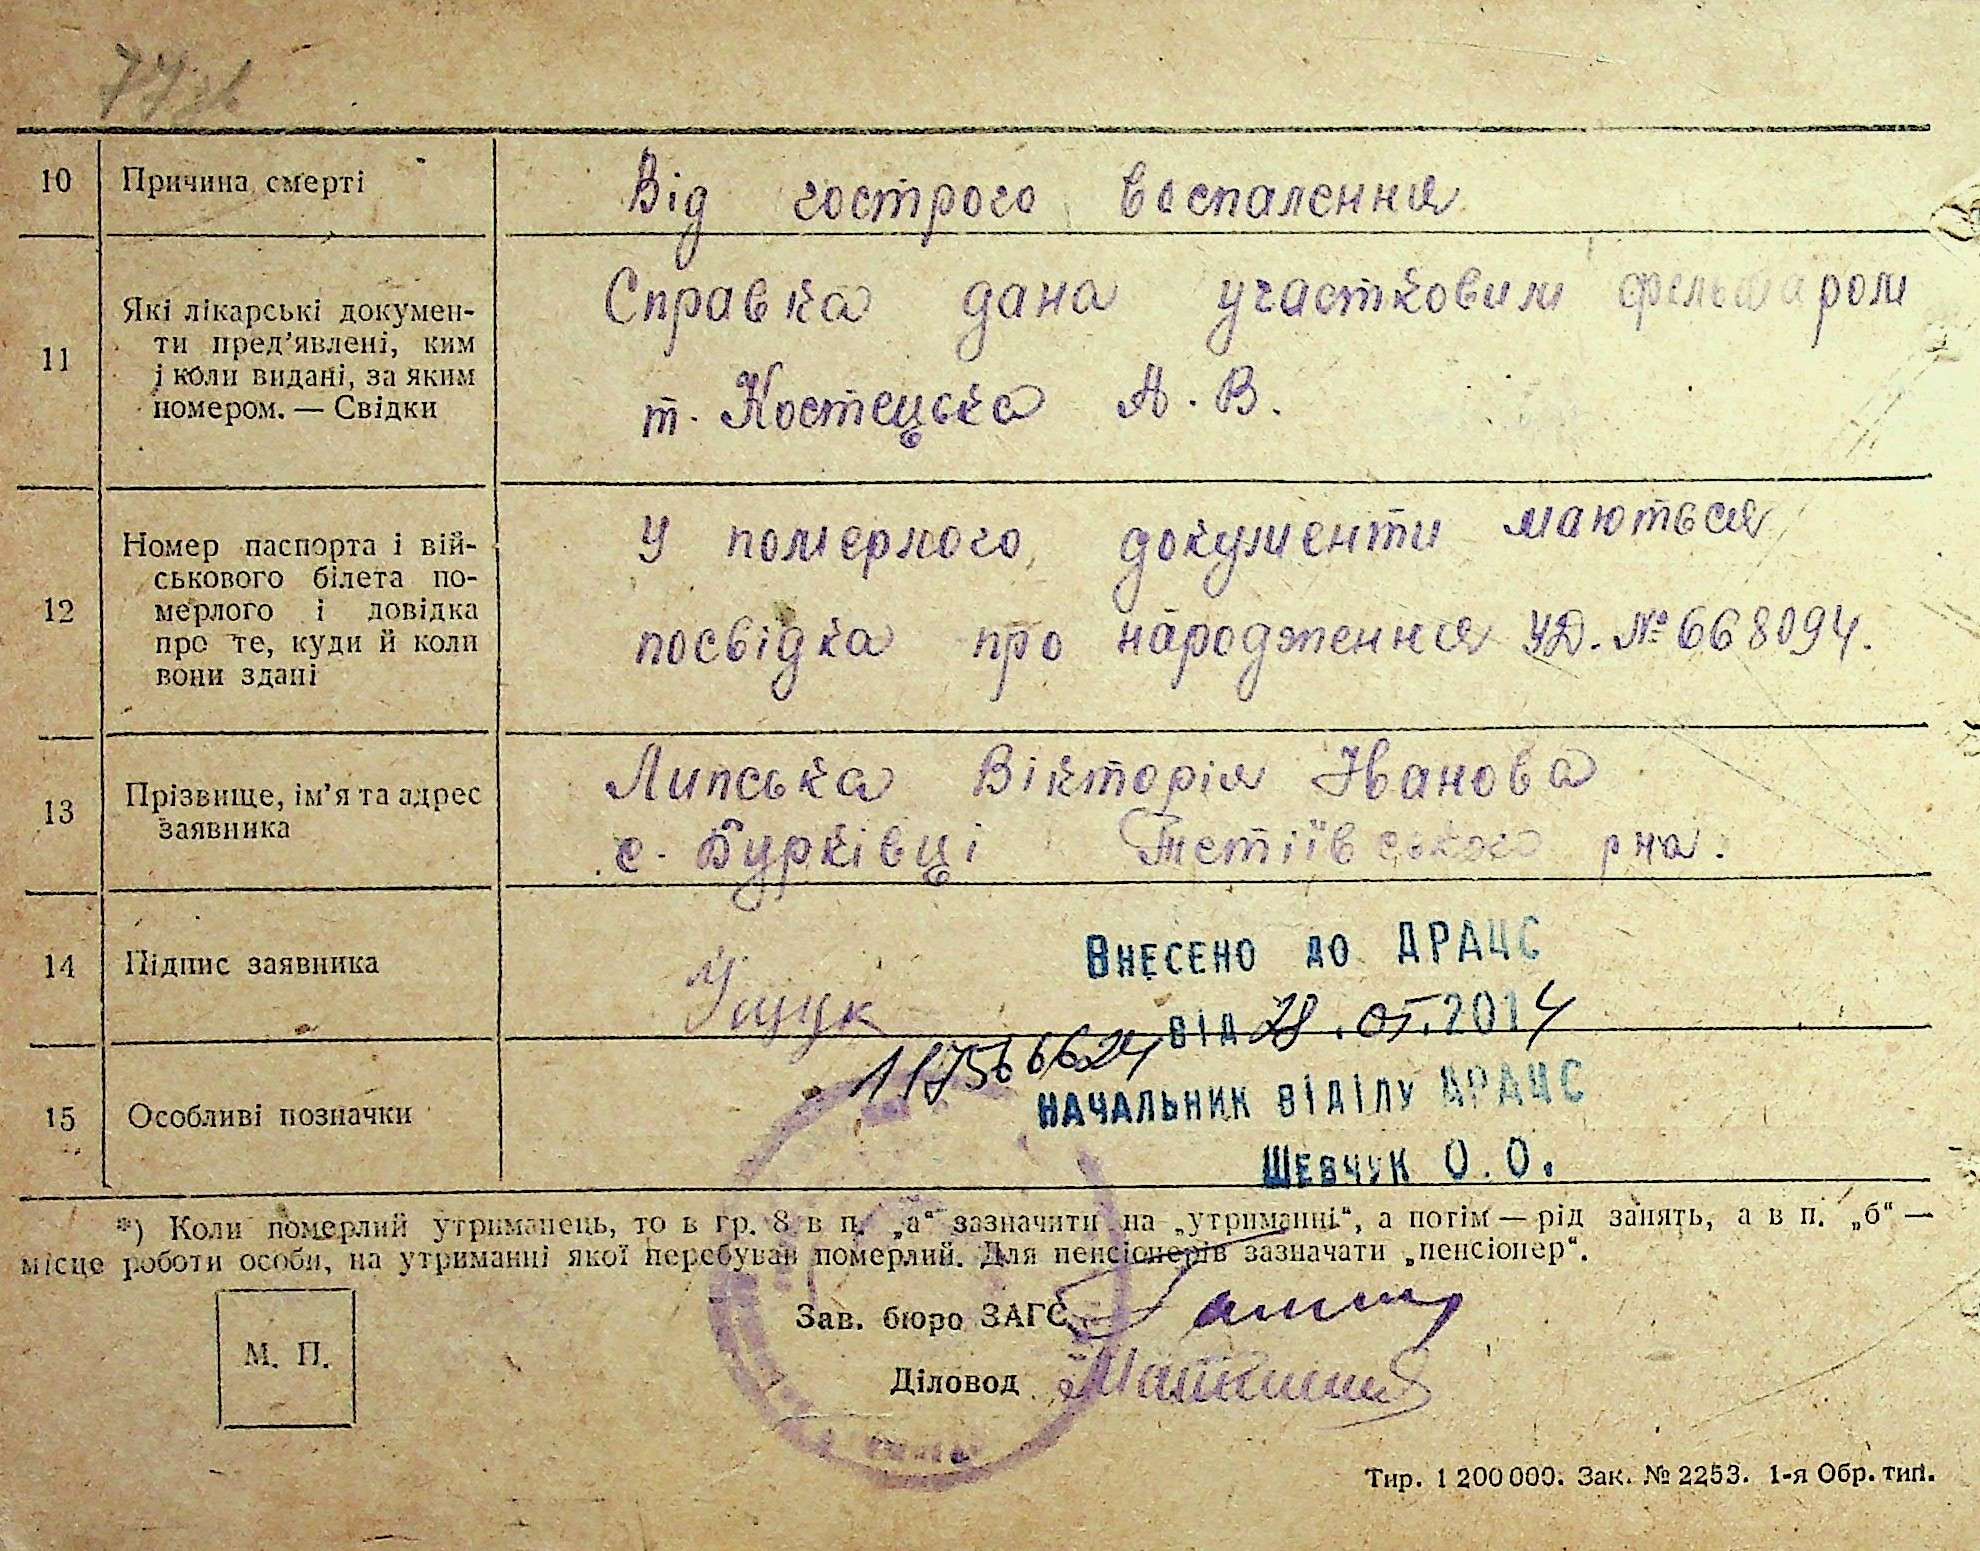 10 Причина смерті Від гострого воспалення
11 Які лікарські докумен-
ти пред’явлені, ким
і коли видані, за яким
номером. — Свідки
Справка дана участковим фельшаром
т. Костецька А. В.
12 Номер паспорта і вій-
ськового білета по-
мерлого і довідка
про те, куди й коли
вони здані
У померлого документи маються
посвідка про народження УД. № 668094.
13 Прізвище, ім’я та адрес
заявника
Липська Вікторія Іванова
с. Бурківці Тетіївського рна.
14 Підпис заявника
Внесено до ДРАЦС
від 28.05.2014
15 Особливі позначки
Начальник відділу ДРАЦС
Шевчук О.О.
*) Коли померлий утриманець, то в гр. 8 в п. „а“ зазначити на „утриманні“, а потім — рід занять, а в п. „б“ —
місце роботи особи, на утриманні якої перебував померлий. Для пенсіонерів зазначати „пенсіонер“.
М. П.
Зав. бюро ЗАГС
Діловод
Тир. 1 200 000. Зак. № 2253. 1-я Обр. тип.